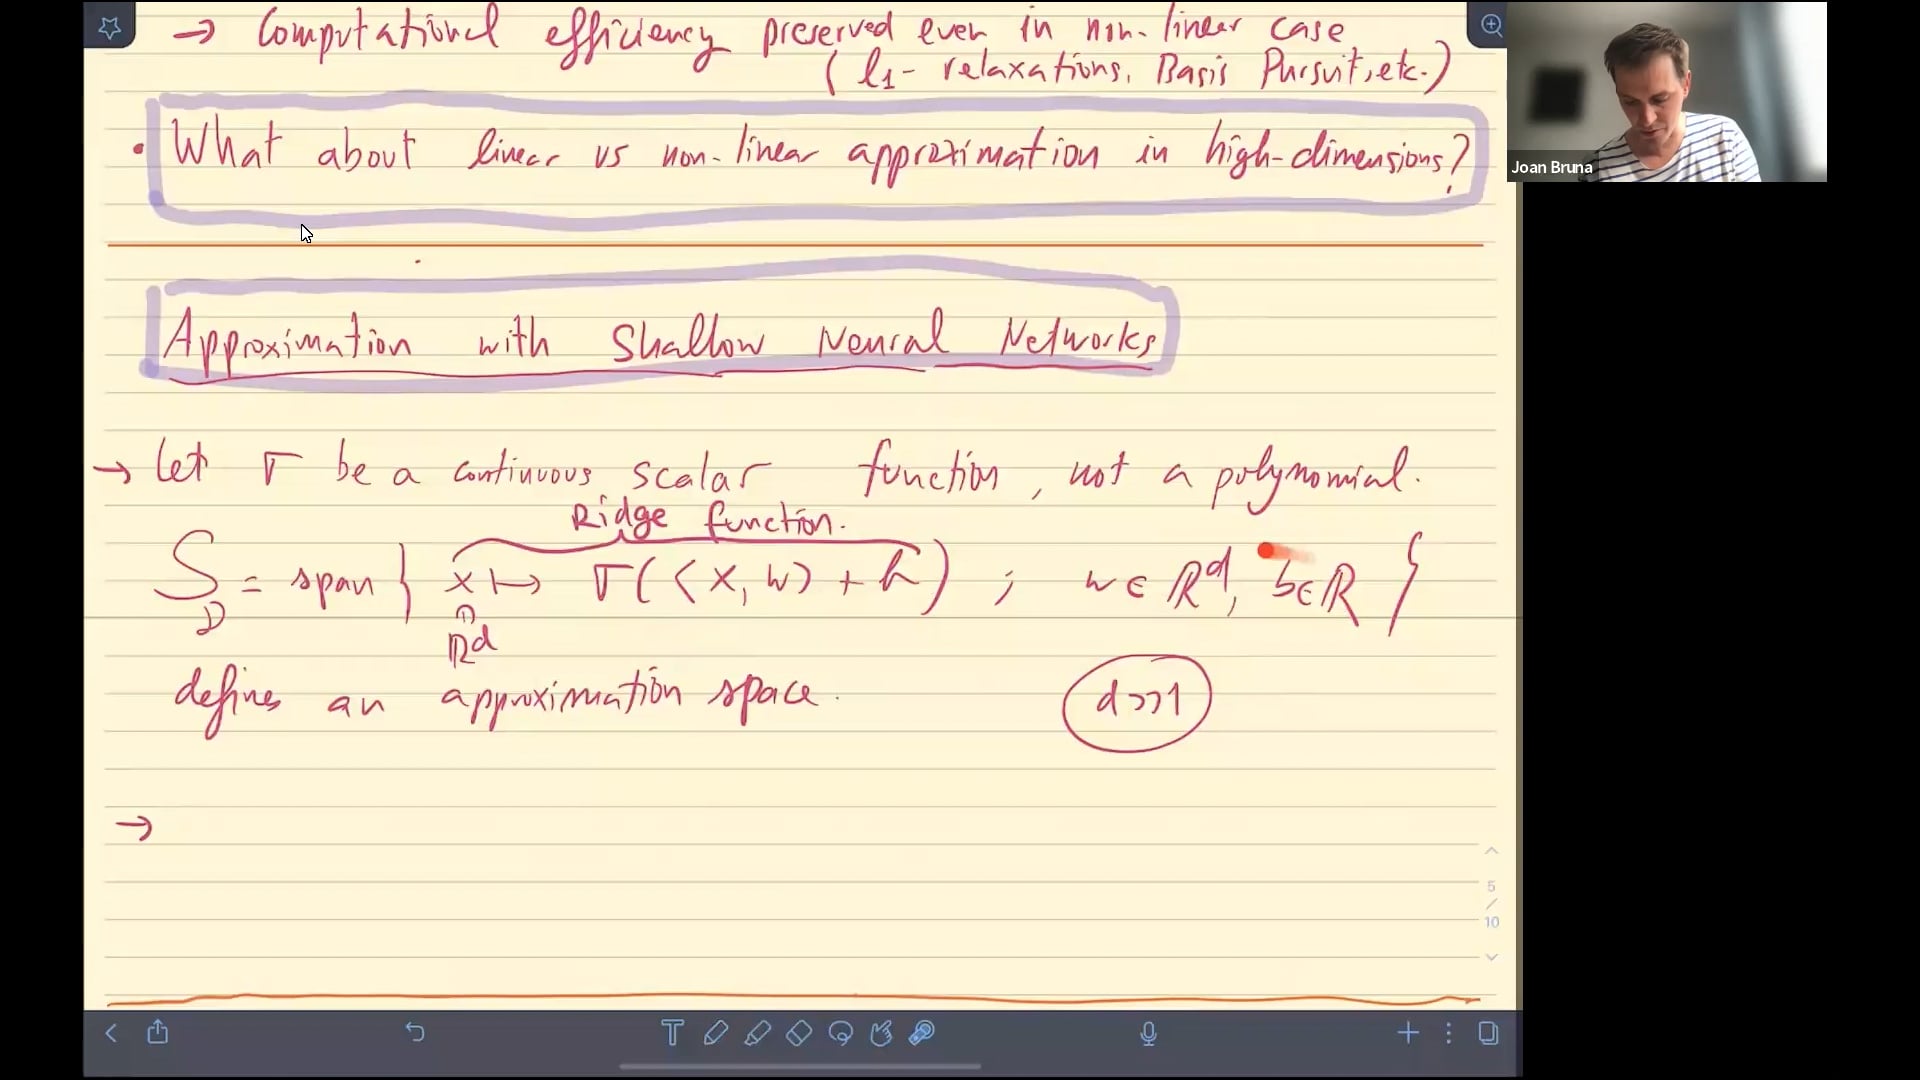 → Computational efficiency preserved even in non-linear case
(l1- relaxations, Basis Pursuit, etc.)
Joan Bruna
• What about linear vs non-linear approximation in high-dimensions?
Approximation with Shallow Neural Networks
→ Let σ be a continuous scalar function, not a polynomial.
Ridge function.
S_D = span { x ↦ σ(⟨x, w⟩ + b) ; w ∈ ℝ^d, b ∈ ℝ }
∩
ℝ^d
defines an approximation space.
d>>1
→
5
/
10